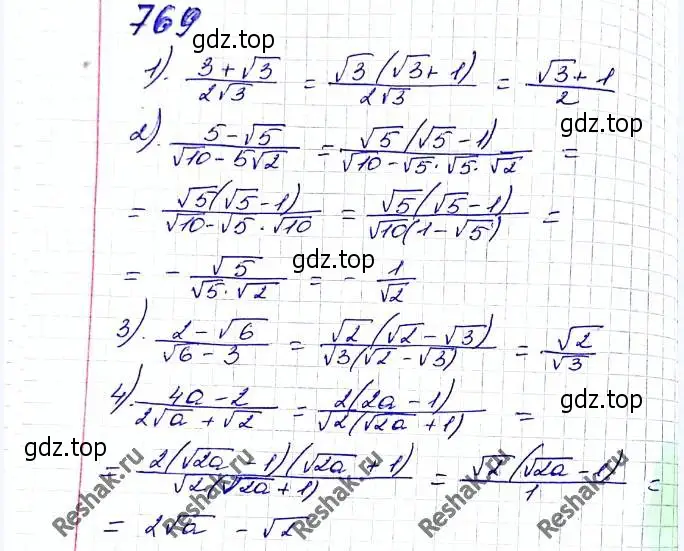 769
gdz.top
gdz.top
1). (3+√3)/(2√3) = (√3(√3+1))/(2√3) = (√3+1)/2
gdz.top
2). (5-√5)/(√10-5√2) = (√5(√5-1))/(√10-√5·√5·√2) =
= (√5(√5-1))/(√10-√5·√10) = (√5(√5-1))/(√10(1-√5)) =
gdz.top
= - √5/(√5·√2) = - 1/√2
3). (2-√6)/(√6-3) = (√2(√2-√3))/(√3(√2-√3)) = √2/√3
4). (4a-2)/(2√a+√2) = (2(2a-1))/(√2(√2a+1)) =
gdz.top
gdz.top
= (2(√2a-1)(√2a+1))/(√2(√2a+1)) = (√2(√2a-1))/1 =
= 2√a - √2
Reshak.ru
Reshak.ru
Reshak.ru
Reshak.ru